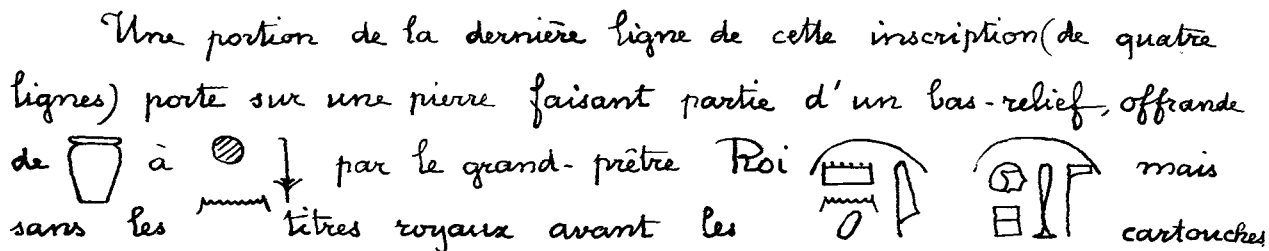 Une portion de la dernière ligne de cette inscription (de quatre
lignes) porte sur une pierre faisant partie d'un bas-relief, offrande
de à par le grand-prêtre Roi mais
sans les titres royaux avant les cartouches